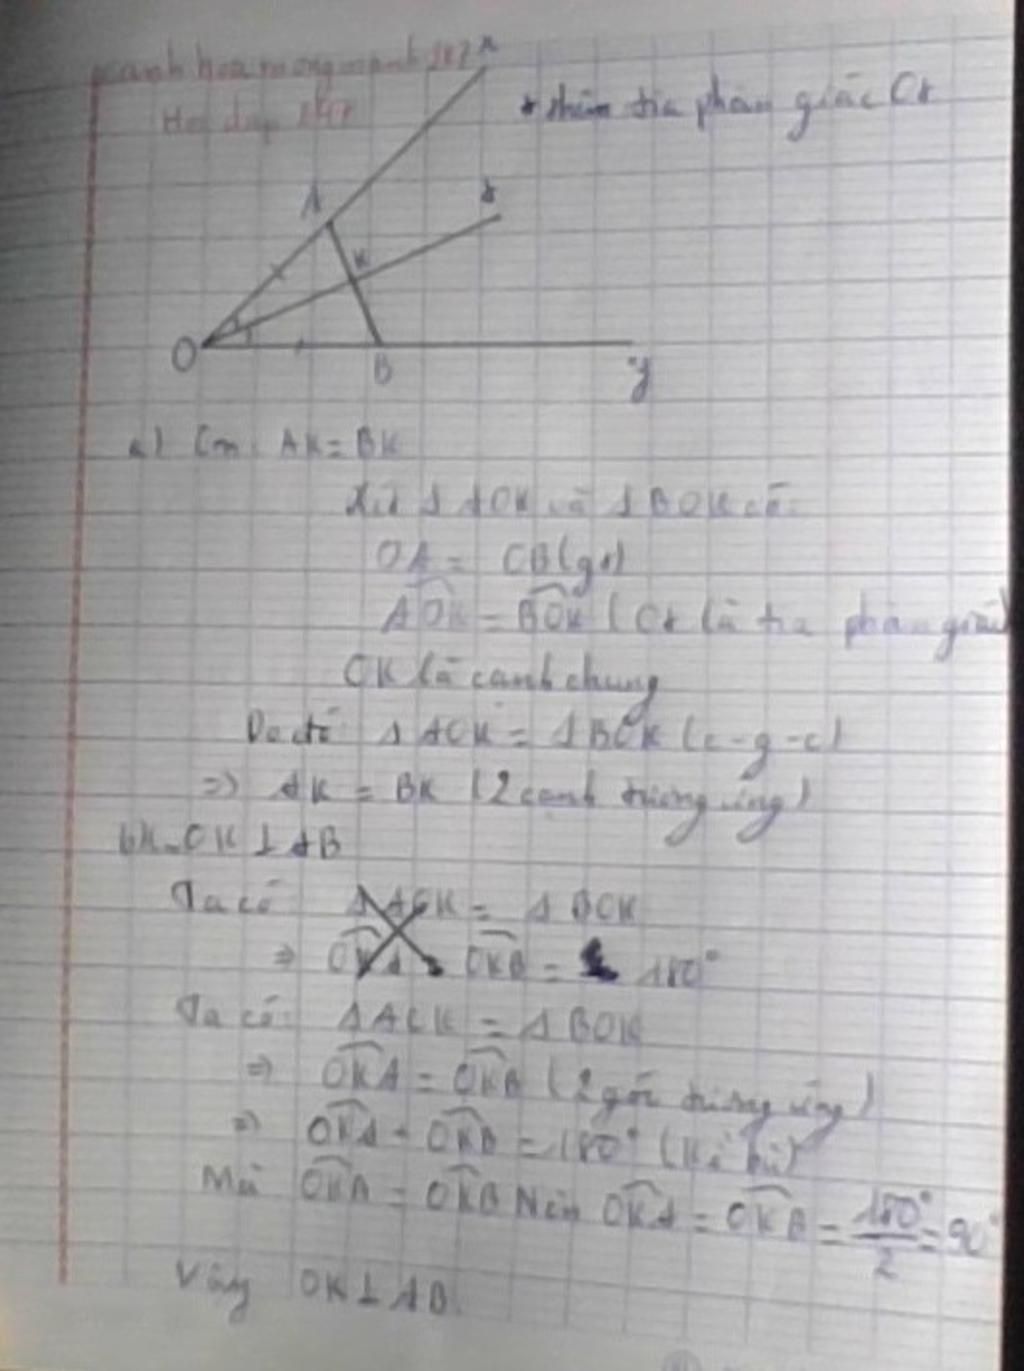 x
* thêm tia phân giác Ot
A
t
K
O
B
y
a) Cm AK = BK
Xét Δ AOK và Δ BOK có:
OA = OB (gt)
AOK = BOK (Ot là tia phân giác)
OK là cạnh chung
Do đó Δ AOK = Δ BOK (c-g-c)
=> AK = BK (2 cạnh tương ứng)
OK ⊥ AB
Ta có Δ AOK = Δ BOK
=> OKA OKB = 180°
Ta có: Δ AOK = Δ BOK
=> OKA = OKB (2 góc tương ứng)
=> OKA + OKB = 180° (kề bù)
Mà OKA = OKB Nên OKA = OKB = 180°/2 = 90°
Vậy OK ⊥ AB.